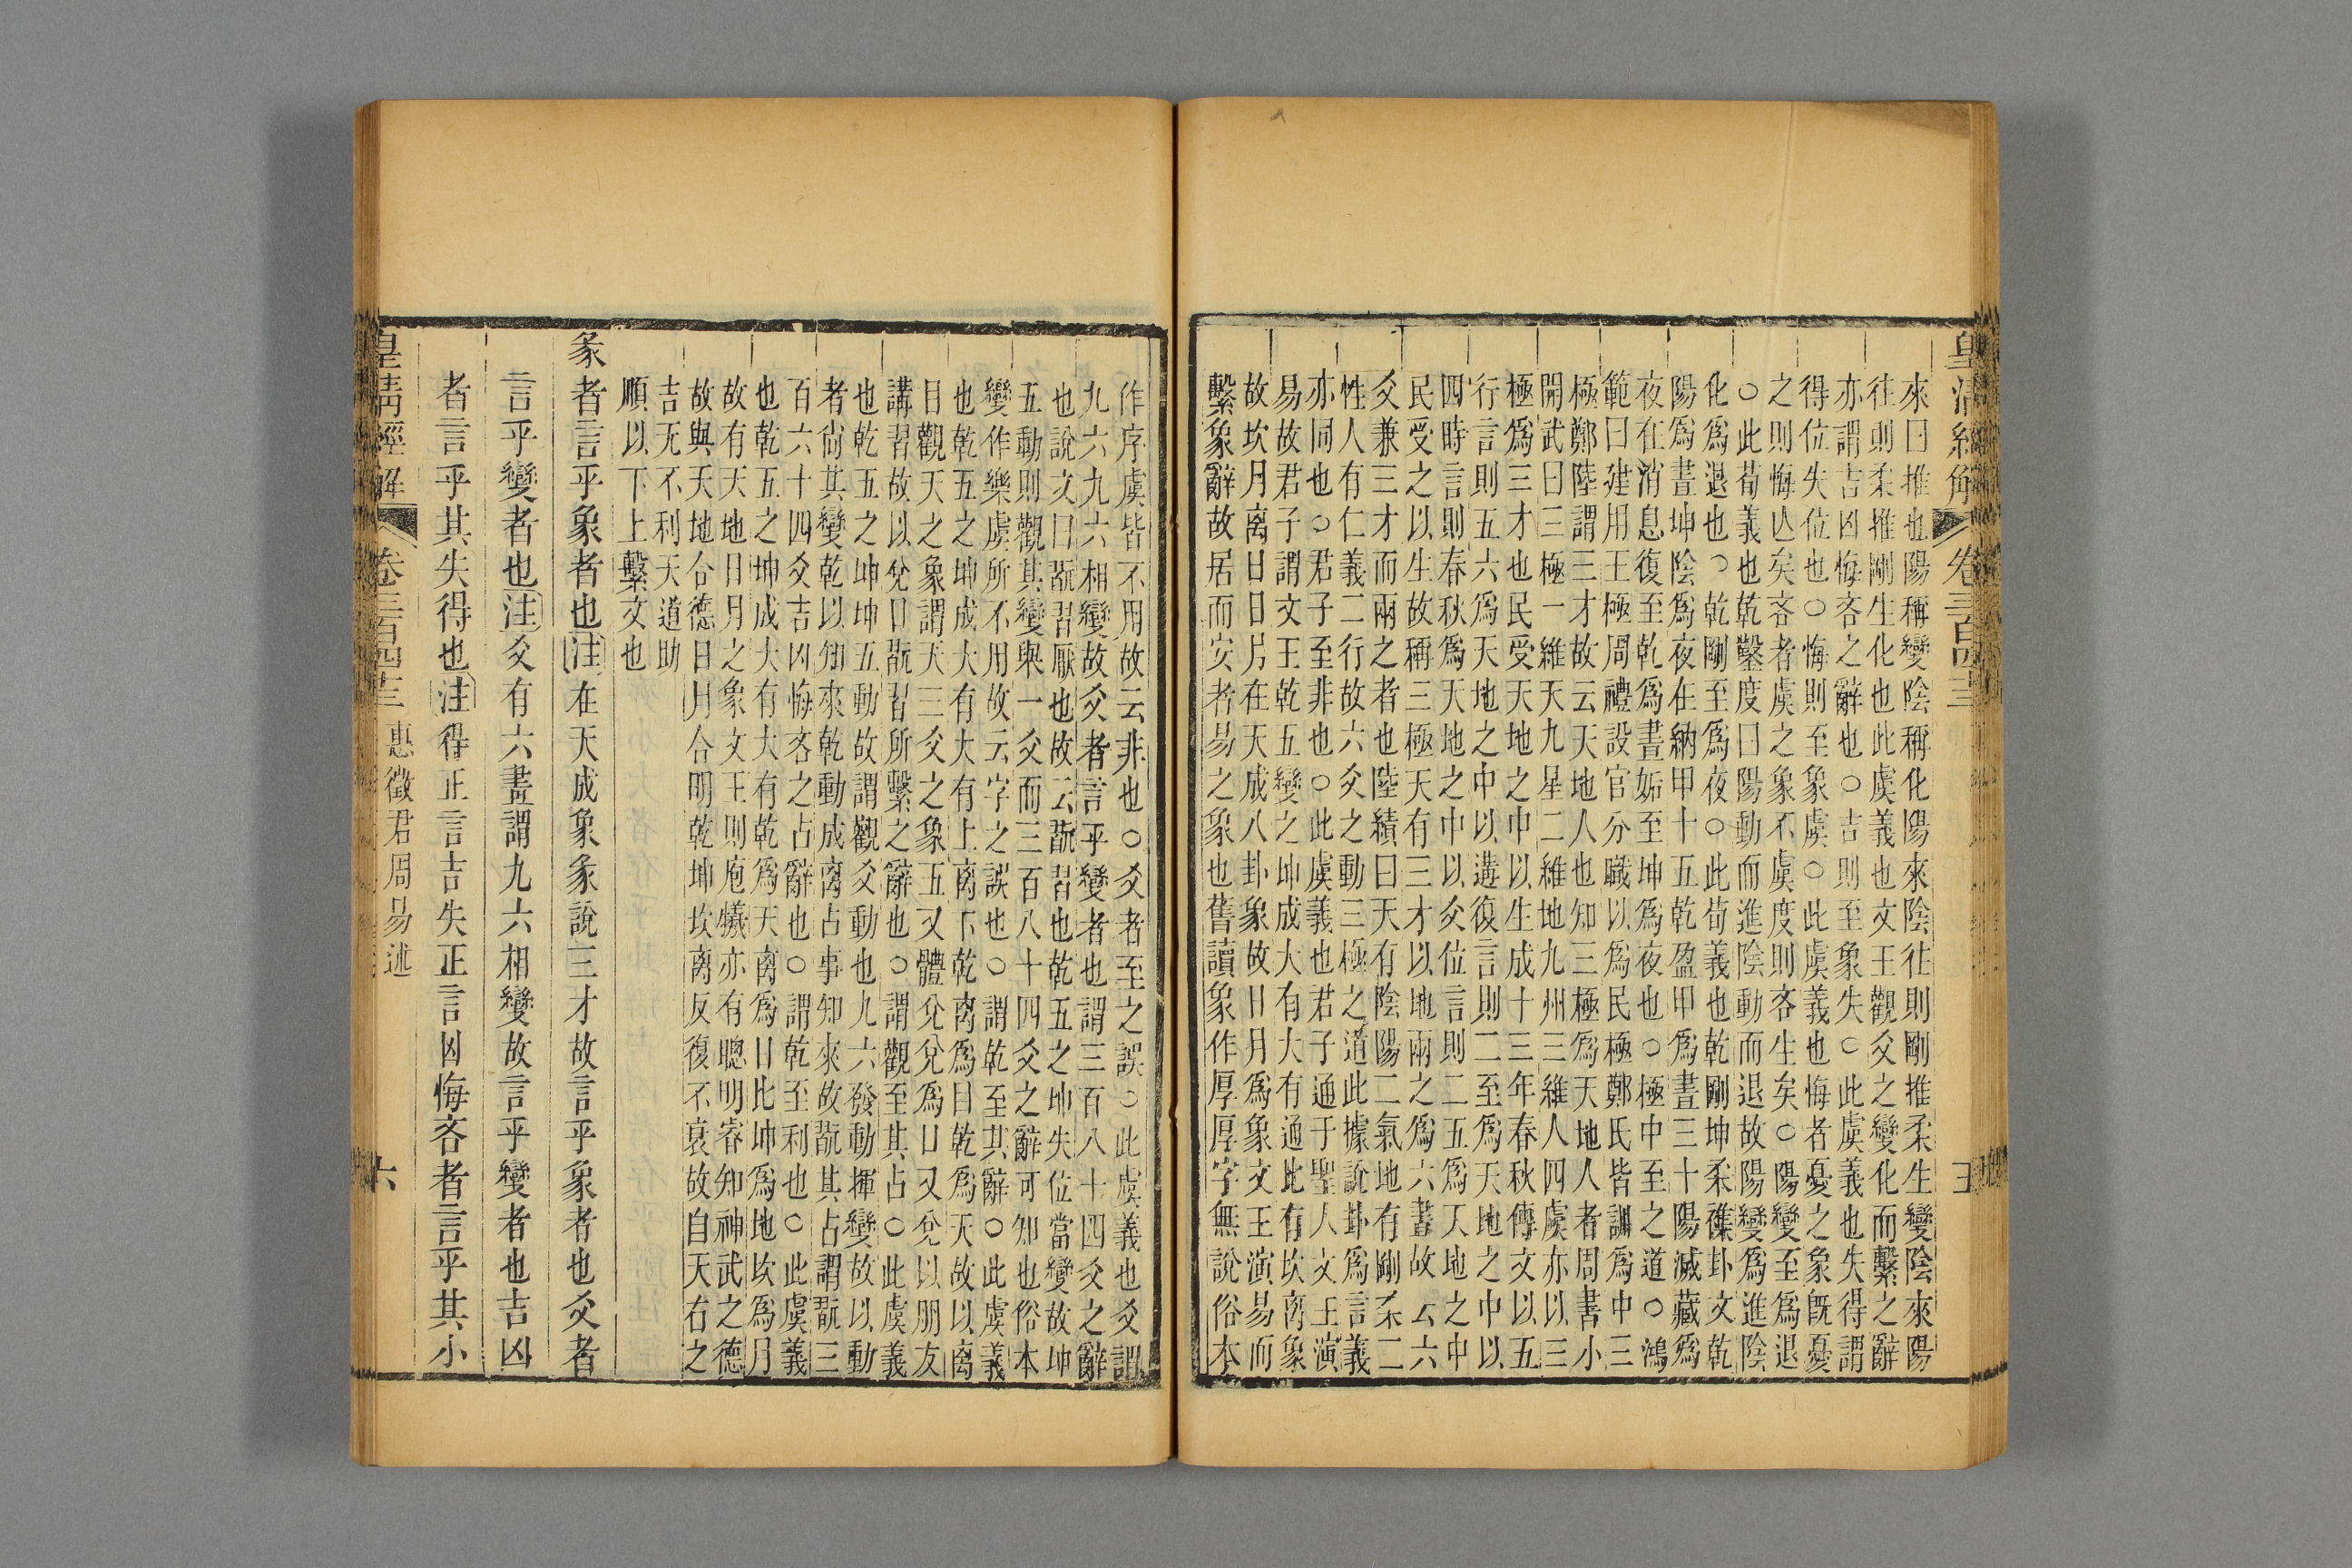 皇清經解
卷三百四十三
五
來曰推也陽稱變陰稱化陽來陰往則剛推柔生變陰來陽
往則柔推剛生化也此虞義也文王觀爻之變化而繫之辭
亦謂吉凶悔吝之辭也○吉則至象失○此虞義也失得謂
得位失位也○悔則至象虞○此虞義也悔者憂之象既憂
之則悔亡矣吝者虞之象不虞度則吝生矣○陽變至爲退
○此荀義也乾鑿度曰陽動而進陰動而退故陽變爲進陰
化爲退也○乾剛至爲夜○此荀義也乾剛坤柔雜卦文乾
陽爲晝坤陰爲夜在納甲十五乾盈甲爲晝三十陽滅藏爲
夜在消息復至乾爲晝姤至坤爲夜也○極中至之道○鴻
範曰建用王極周禮設官分職以爲民極鄭氏皆訓爲中三
極鄭陸謂三才故云天地人也知三極爲天地人者周書小
開武曰三極一維天九星二維地九州三維人四虞亦以三
極爲三才也民受天地之中以生成十三年春秋傳文以五
行言則五六爲天地之中以遘復言則二至爲天地之中以
四時言則春秋爲天地之中以爻位言則二五爲天地之中
民受之以生故稱三極天有三才以地兩之爲六畫故云六
爻兼三才而兩之者也陸績曰天有陰陽二氣地有剛柔二
性人有仁義二行故六爻之動三極之道此據說卦爲言義
亦同也○君子至非也○此虞義也君子通于聖人文王演
易故君子謂文王乾五變之坤成大有大有通比有坎离象
故坎月离日日月在天成八卦象故日月爲象文王演易而
繫象辭故居而安者易之象也舊讀象作厚厚字無說俗本
作序虞皆不用故云非也○爻者至之誤○此虞義也爻謂
九六九六相變故爻者言乎變者也謂三百八十四爻之辭
也說文曰翫習厭也故云翫習也乾五之坤失位當變故坤
五動則觀其變與一爻而三百八十四爻之辭可知也俗本
變作樂虞所不用故云字之誤也○謂乾至其辭○此虞義
也乾五之坤成大有大有上离下乾离爲日乾爲天故以离
日觀天之象謂天三爻之象五又體兌兌爲口又兌以朋友
講習故以兌口翫習所繫之辭也○謂觀至其占○此虞義
也乾五之坤坤五動故謂觀爻動也九六發動揮變故以動
者尚其變乾以知來乾動成离占事知來故翫其占謂翫三
百六十四爻吉凶悔吝之占辭也○謂乾至利也○此虞義
也乾五之坤成大有大有乾爲天离爲日比坤爲地坎爲月
故有天地日月之象文王則庖犧亦有聰明睿知神武之德
故與天地合德日月合明乾坤坎离反復不衰故自天右之
吉无不利天道助
順以下上繫文也
彖者言乎象者也注在天成象彖說三才故言乎象者也爻者
言乎變者也注爻有六畫謂九六相變故言乎變者也吉凶
者言乎其失得也注得正言吉失正言凶悔吝者言乎其小
皇清經解
卷三百四十三
惠徵君周易述
六